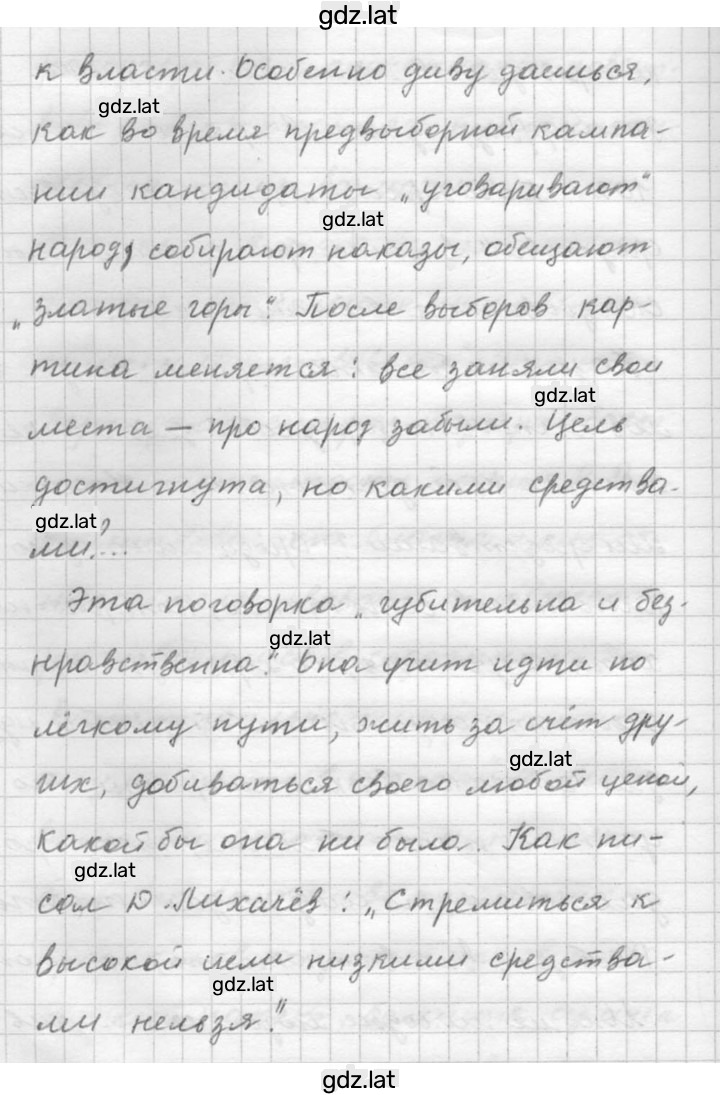 gdz.lat
к власти. Особенно диву даёшься,
gdz.lat
как во время предвыборной кампа-
нии кандидаты „уговаривают"
gdz.lat
народ, собирают наказы, обещают
„златые горы". После выборов кар-
тина меняется: все заняли свои
gdz.lat
места – про народ забыли. Цель
достигнута, но какими средства-
gdz.lat
ми?...
Эта поговорка „губительна и без-
gdz.lat
нравственна". Она учит идти по
лёгкому пути, жить за счёт дру-
gdz.lat
гих, добиваться своего любой ценой,
какой бы она ни была. Как пи-
gdz.lat
сал Д. Лихачёв: „Стремиться к
высокой цели низкими средства-
gdz.lat
ми нельзя."
gdz.lat